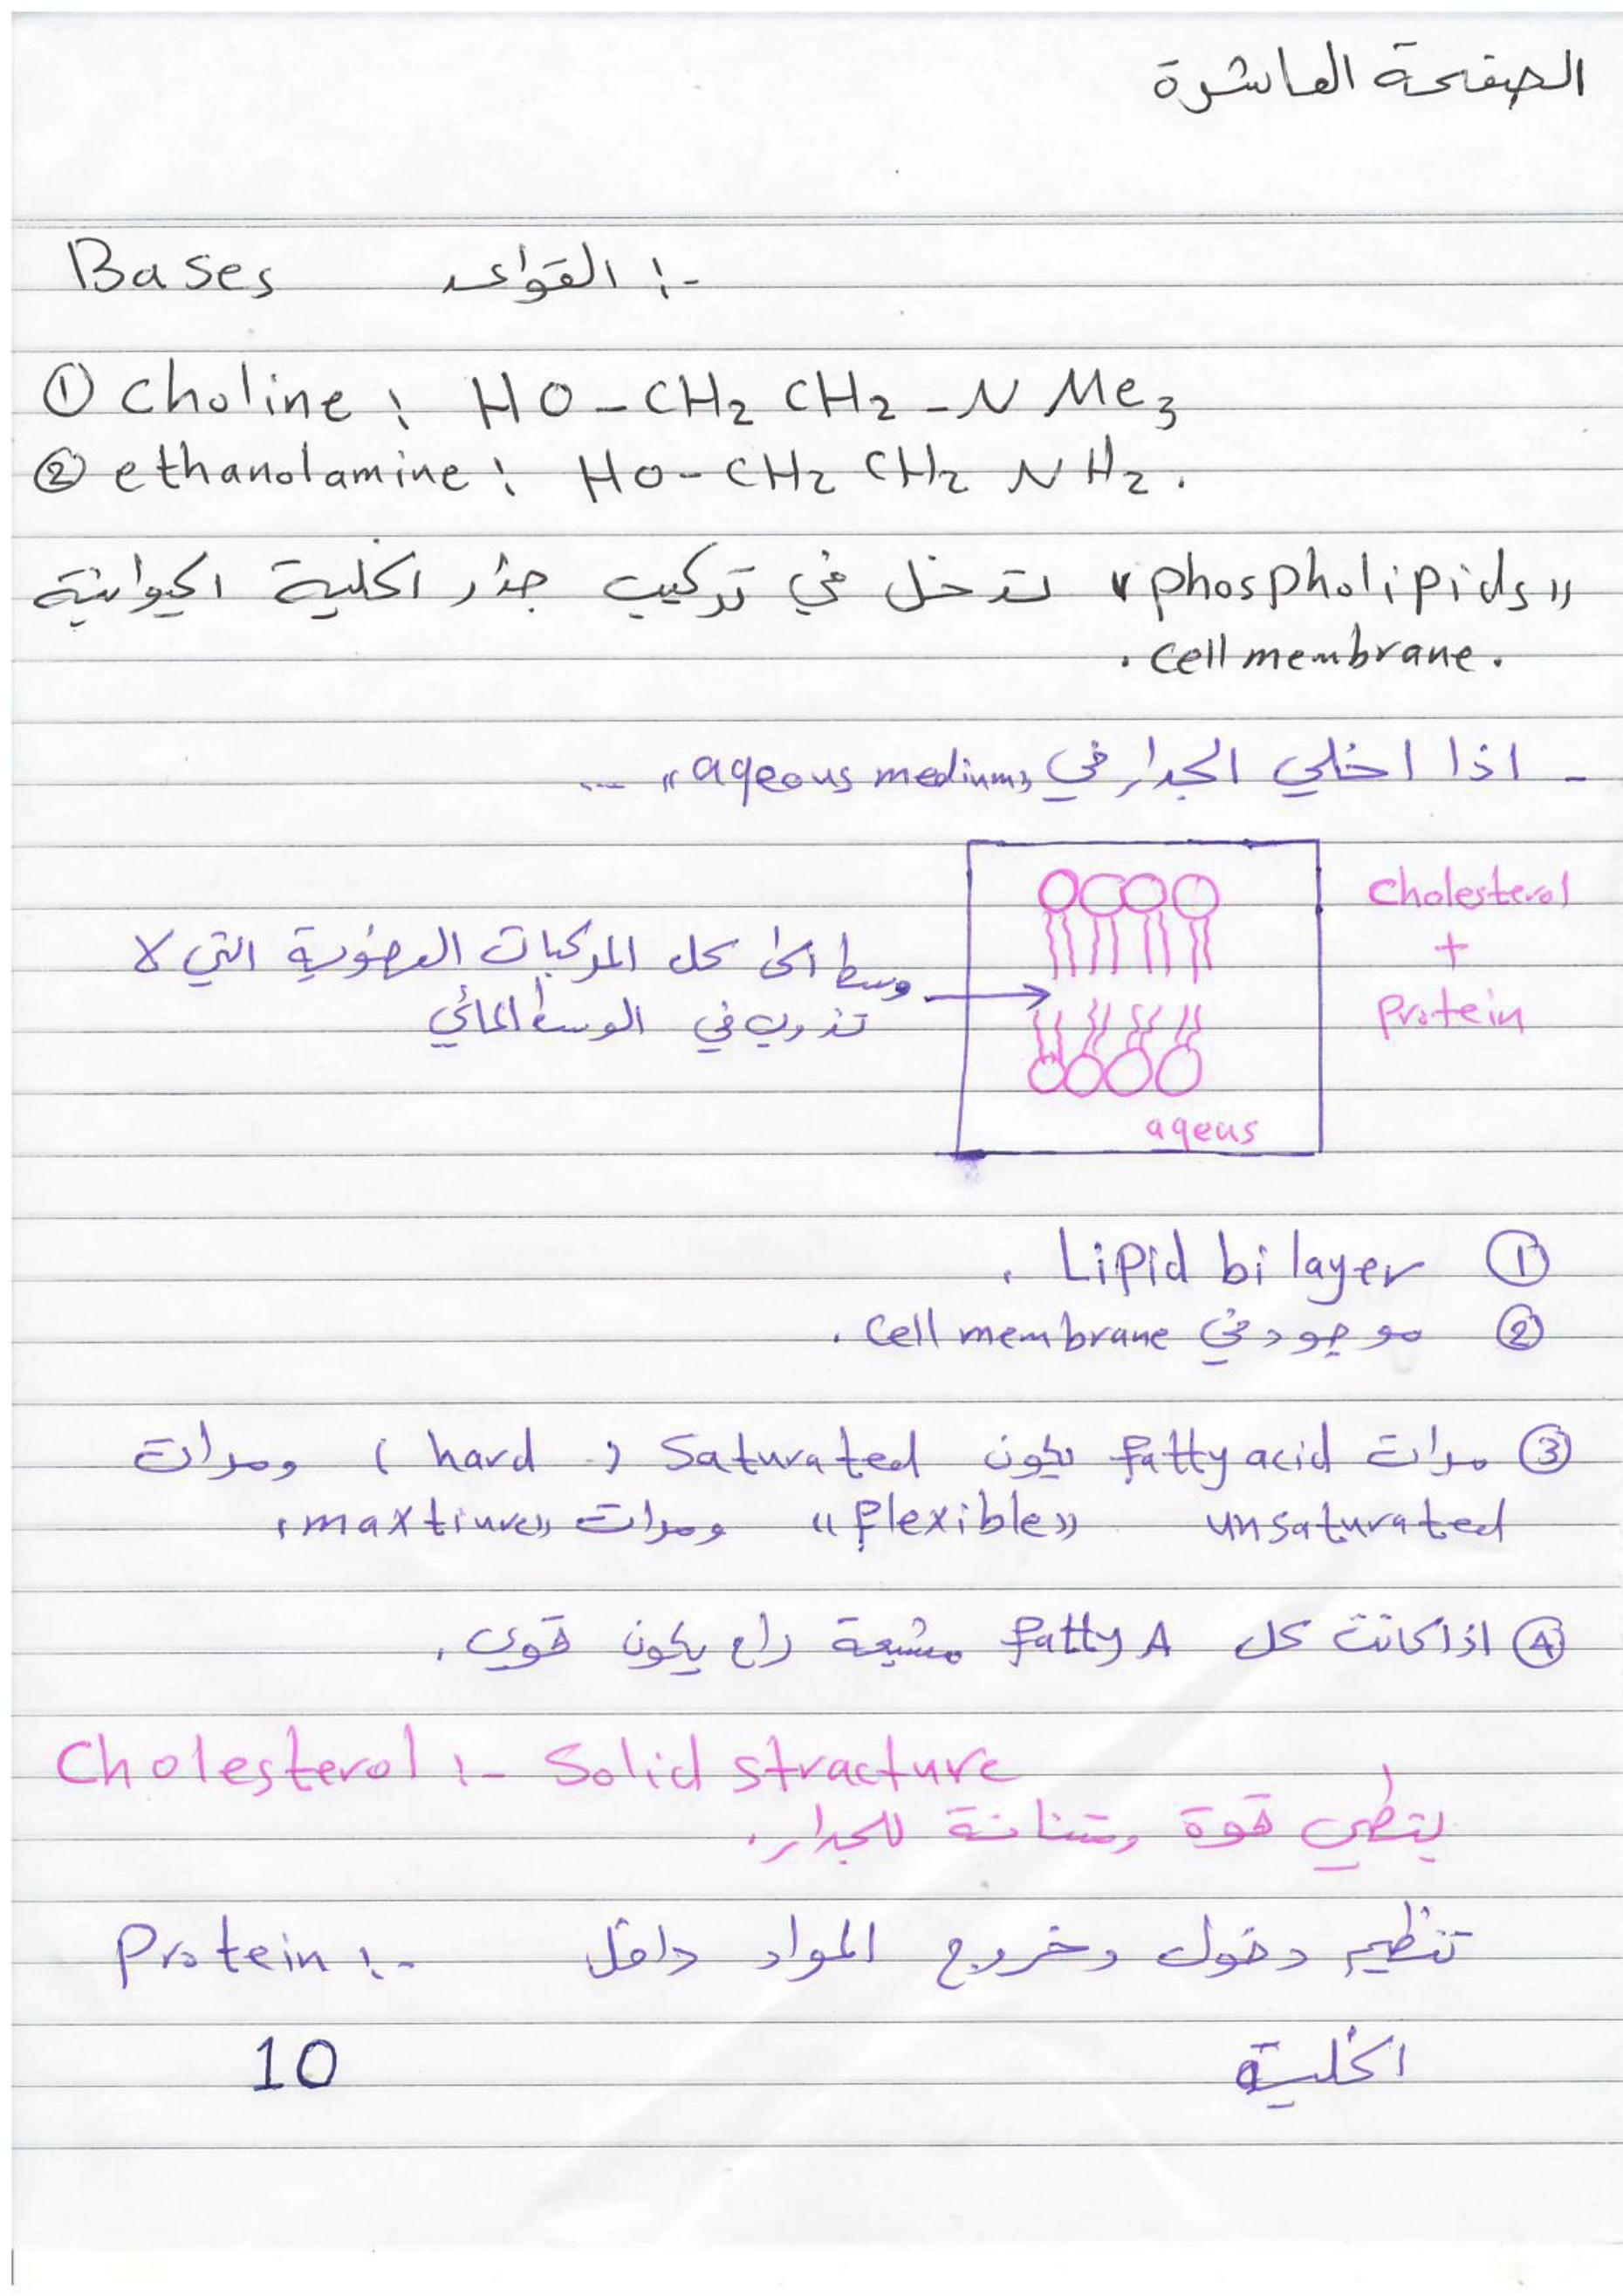 الصفحة العاشرة
Bases القواعد :-
① choline : HO-CH2 CH2-N Me3
② ethanolamine : HO-CH2 CH2 NH2.
"phospholipids" تدخل في تركيب جدار الخلية الحيوانية
. cell membrane.
- اذا اخلي الجدار في "aqeous medium" ...
cholesterol
+
protein
وسط الى كل المركبات العضوية التي لا
تذوب في الوسط المائي
aqeus
① Lipid bilayer .
② موجود في cell membrane .
③ مرات fatty acid يكون saturated ( hard ) ومرات
unsaturated "flexible" ومرات "maxtiure"
④ اذا كانت كل fatty A مشبعة راح يكون قوي .
Cholesterol :- Solid stracture
ينطي قوة ومتانة للجدار.
Protein :- تنظيم دخول وخروج المواد داخل
الخلية
10